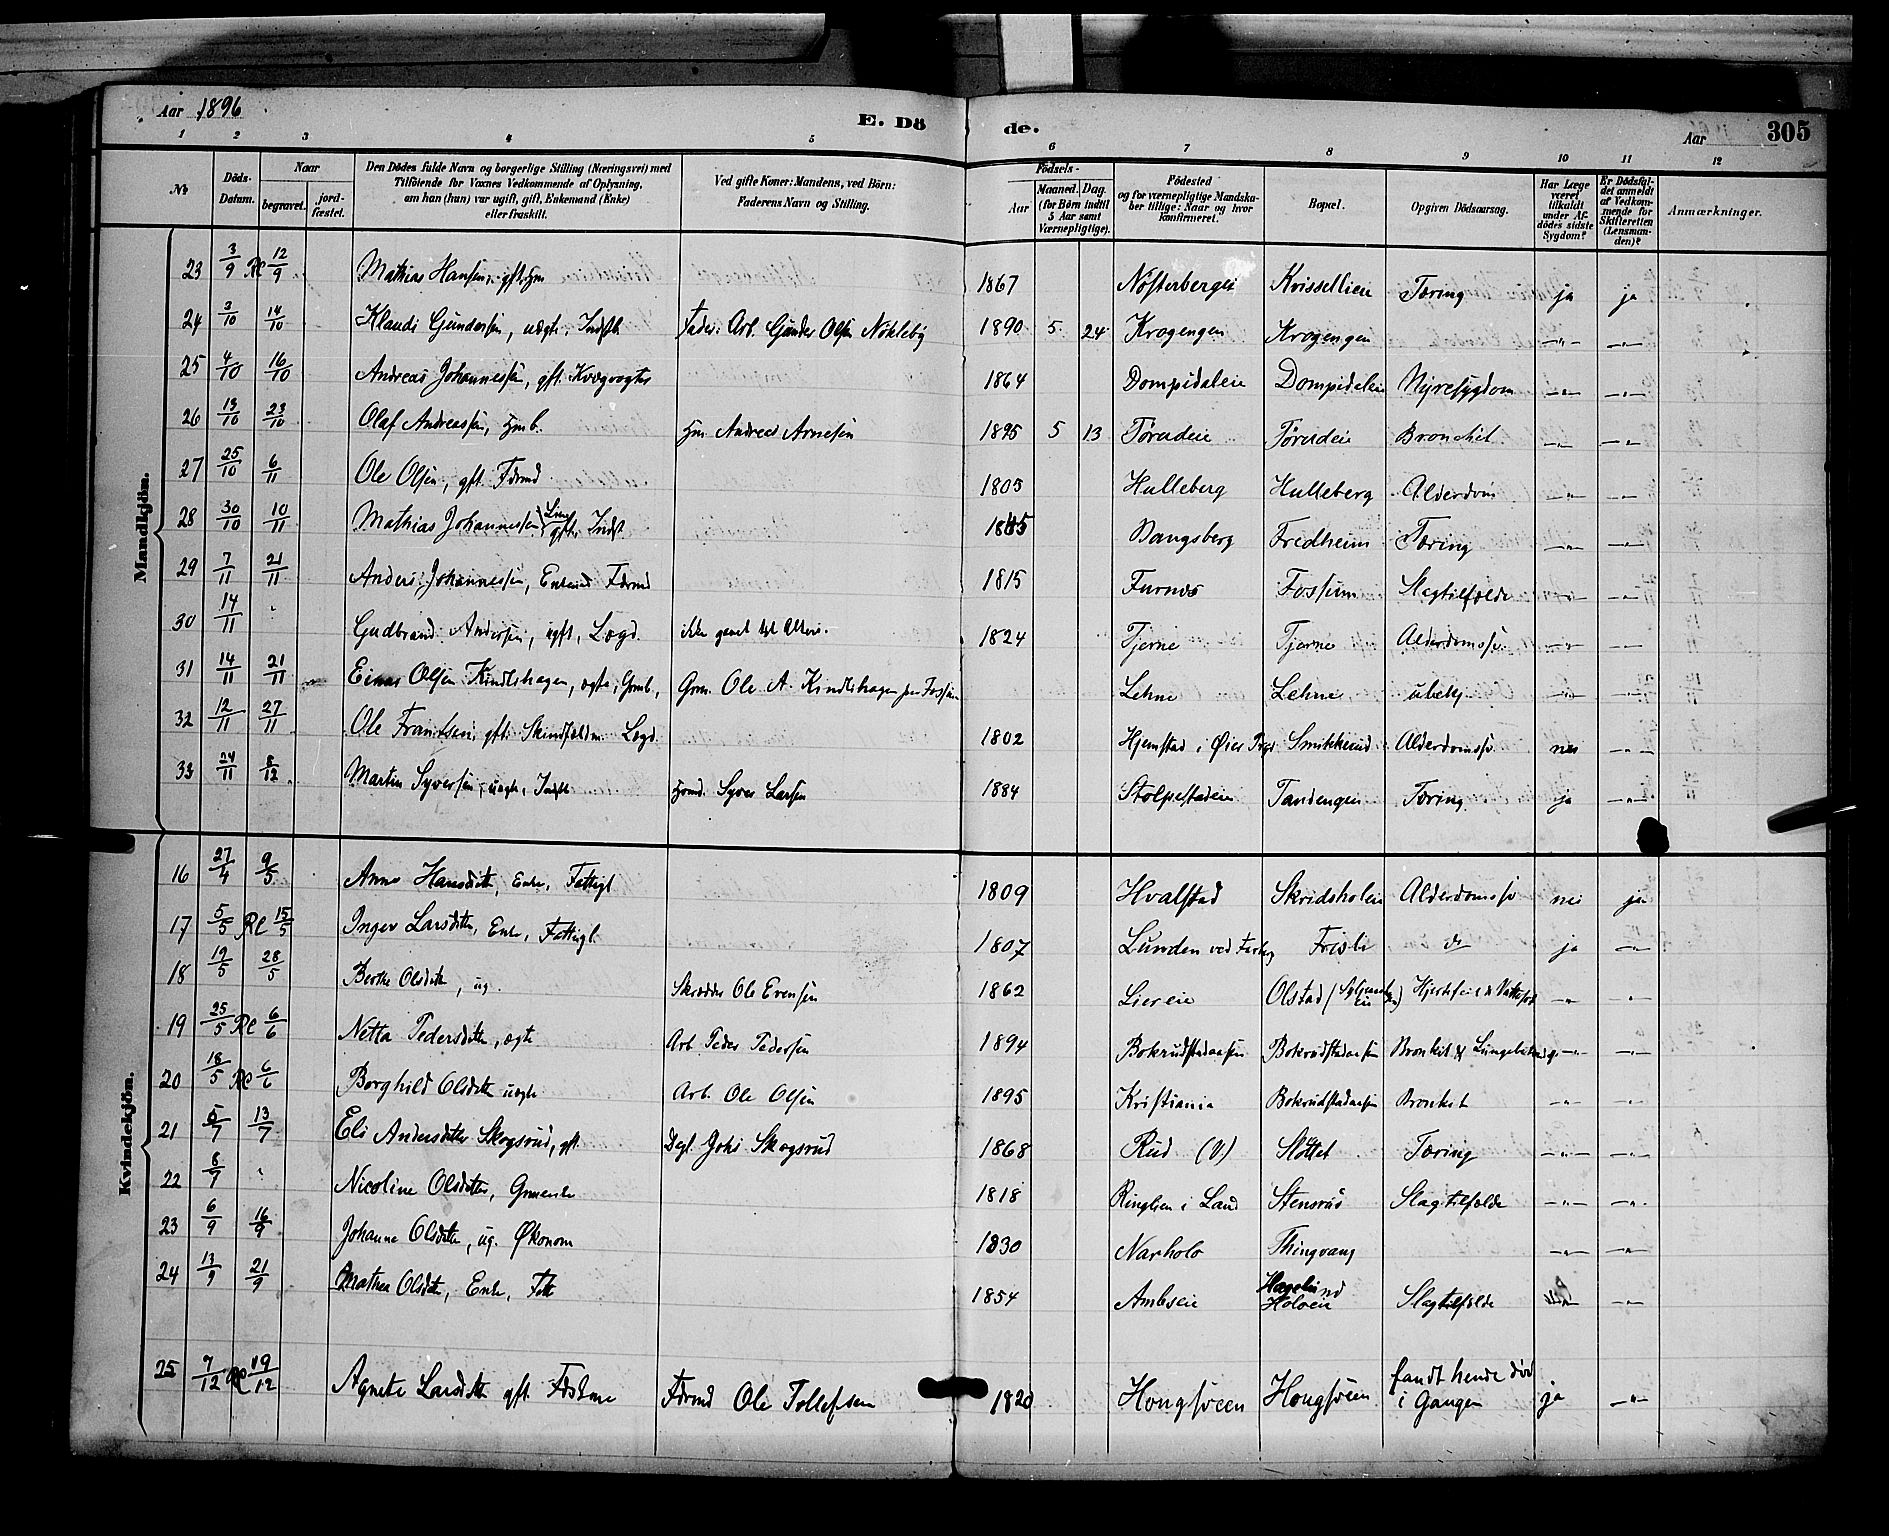 Aar 1896
E. Dö
de.
Aar
305
1 2 3 4 5 6 7 8 9 10 11 12
No
Döds-Datum.
Naar
begravet.
jord-fæstet.
Den Dödes fulde Navn og borgerlige Stilling (Næringsvei) med
Tilföiende for Voxnes Vedkommende af Oplysning,
om han (hun) var ugift, gift, Enkemand (Enke)
eller fraskilt.
Ved gifte Koner: Mandens, ved Börn:
Faderens Navn og Stilling.
Födsels-
Aar
Maaned. Dag.
(for Börn indtil
5 Aar samt
Værnepligtige).
Födested
og for værnepligtige Mandska-
ber tillige: Naar og hvor
konfirmeret.
Bopæl.
Opgiven Dödsaarsag.
Har Læge
været
tilkaldt
under Af-
dödes sidste
Sygdom?
Er Dödsfal-
det anmeldt
af Vedkom-
mende for
Skifteretten
(Lensman-
den)?
Anmærkninger.
Mandkjön.
23 3/9 Re 12/9 Mathias Hansen, gft. Hm 1867 Nösterbergei Krissellien Tæring ja ja
24 3/10 14/10 Klaudi Gundersen, uægte, Indst Fader: Arb. Gunder Olsen Nöklebÿ 1890 5 24 Krogengen Krogengen —"— —"—
25 4/10 16/10 Andreas Johannessen, gft. Kvægvogter 1864 Dompidaleie Dompidaleie Nyresygdom —"— —"—
26 13/10 23/10 Olaf Andreassen, Hmb. Hm. Andreas Arnesen 1895 5 13 Törudeie Törudeie Bronchit —"— —"—
27 25/10 6/11 Ole Olsen, gft. Fdrmd 1805 Hulleberg Hulleberg Alderdom —"— —"—
28 30/10 10/11 Mathias Johannessen Lien gft. Indst 1845 Bangsberg Fredheim Tæring —"— —"—
29 7/11 21/11 Anders Johannessen, Enkemd Fdrmd 1815 Furnes Fossum Slagtilfælde —"— —"—
30 14/11 Gudbrand Andersen, ugft, Logd. ikke gravet 1824 Tjerne Tjerne Alderdomssv. —"— —"—
31 14/11 21/11 Einar Olsen Kindlshagen, ægte, Grmb, Grm. Ole A. Kindlshagen Lehne Lehne ubekj. —"— —"—
32 12/11 27/11 Ole Frantsen, gft. Skindfældm Logd 1802 Hjemstad i Øier Prgd Smikkerud Alderdomssv nei —"—
33 24/11 8/12 Martin Syversen, uægte, Indst Hsmd. Syver Larsen 1884 Stolpestadeie Tandengen Tæring ja —"—
Kvindekjön.
16 27/4 9/5 Anne Hansdtt, Enke, Fattigl 1809 Hvalstad Skridsholeie Alderdomssv nei ja
17 5/5 Re 15/5 Inger Larsdtt, Enke, Fattigl 1807 Lunden ved Frisli do ja —"—
18 19/5 28/5 Berthe Olsdtt, ug. Skrædder Ole Evensen 1862 Liereie Olstad Hjertefeil & Vattersot —"— —"—
19 25/5 Re 6/6 Netta Pedersdtt, ægte Arb. Peder Pedersen 1894 Bokrudstadaasen Bokrudstadaasen Bronkit & Lungebetændg. —"— —"—
20 18/5 Re 6/6 Borghild Olsdtt uægte Arb. Ole Olsen 1895 Kristiania Bokrudstadaasen Bronkit —"— —"—
21 5/7 13/7 Eli Andersdatter Skogsrud, gft Dgl. Johs Skogsrud 1868 Rud (V) Slottet Tæring —"— —"—
22 8/7 Nicoline Olsdatter, Grmenke 1818 Ringlien i Land Stensrud Slagtilfælde —"— —"—
23 6/9 16/9 Johanne Olsdtt, ug. Økonom 1830 Narholo Thingvang —"— —"—
24 13/9 21/9 Mathea Olsdtt, Enke, Ftt 1854 Ambseie Hagelund Holoeie Slagtilfælde —"—
25 7/12 Re 19/12 Agnete Larsdtt gft. Fdrmd Ole Tollefsen 1820 Hongsveen Hongsveen fandt hende död i Gangen ja —"—